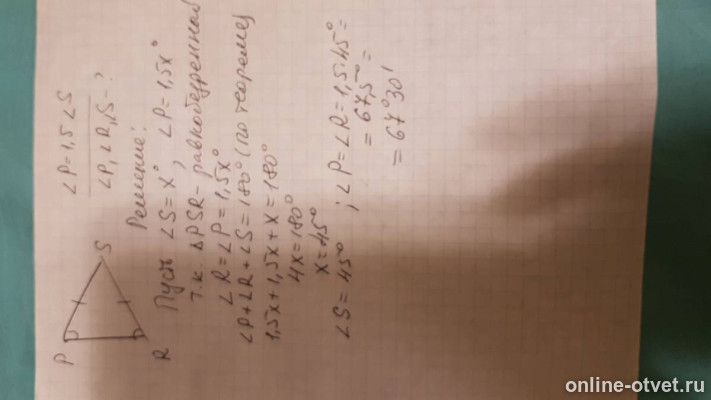 ∠P=1,5∠S
∠P, ∠R, ∠S-?
Решение:
Пусть ∠S=x°, ∠P=1,5x°
т.к. ΔPSR-равнобедренный
∠R=∠P=1,5x°
∠P+∠R+∠S=180° (по теореме)
1,5x+1,5x+x=180°
4x=180°
x=45°
∠S=45° ; ∠P=∠R=1,5·45°=
=67,5°=
=67°30'
P
S
R
online-otvet.ru